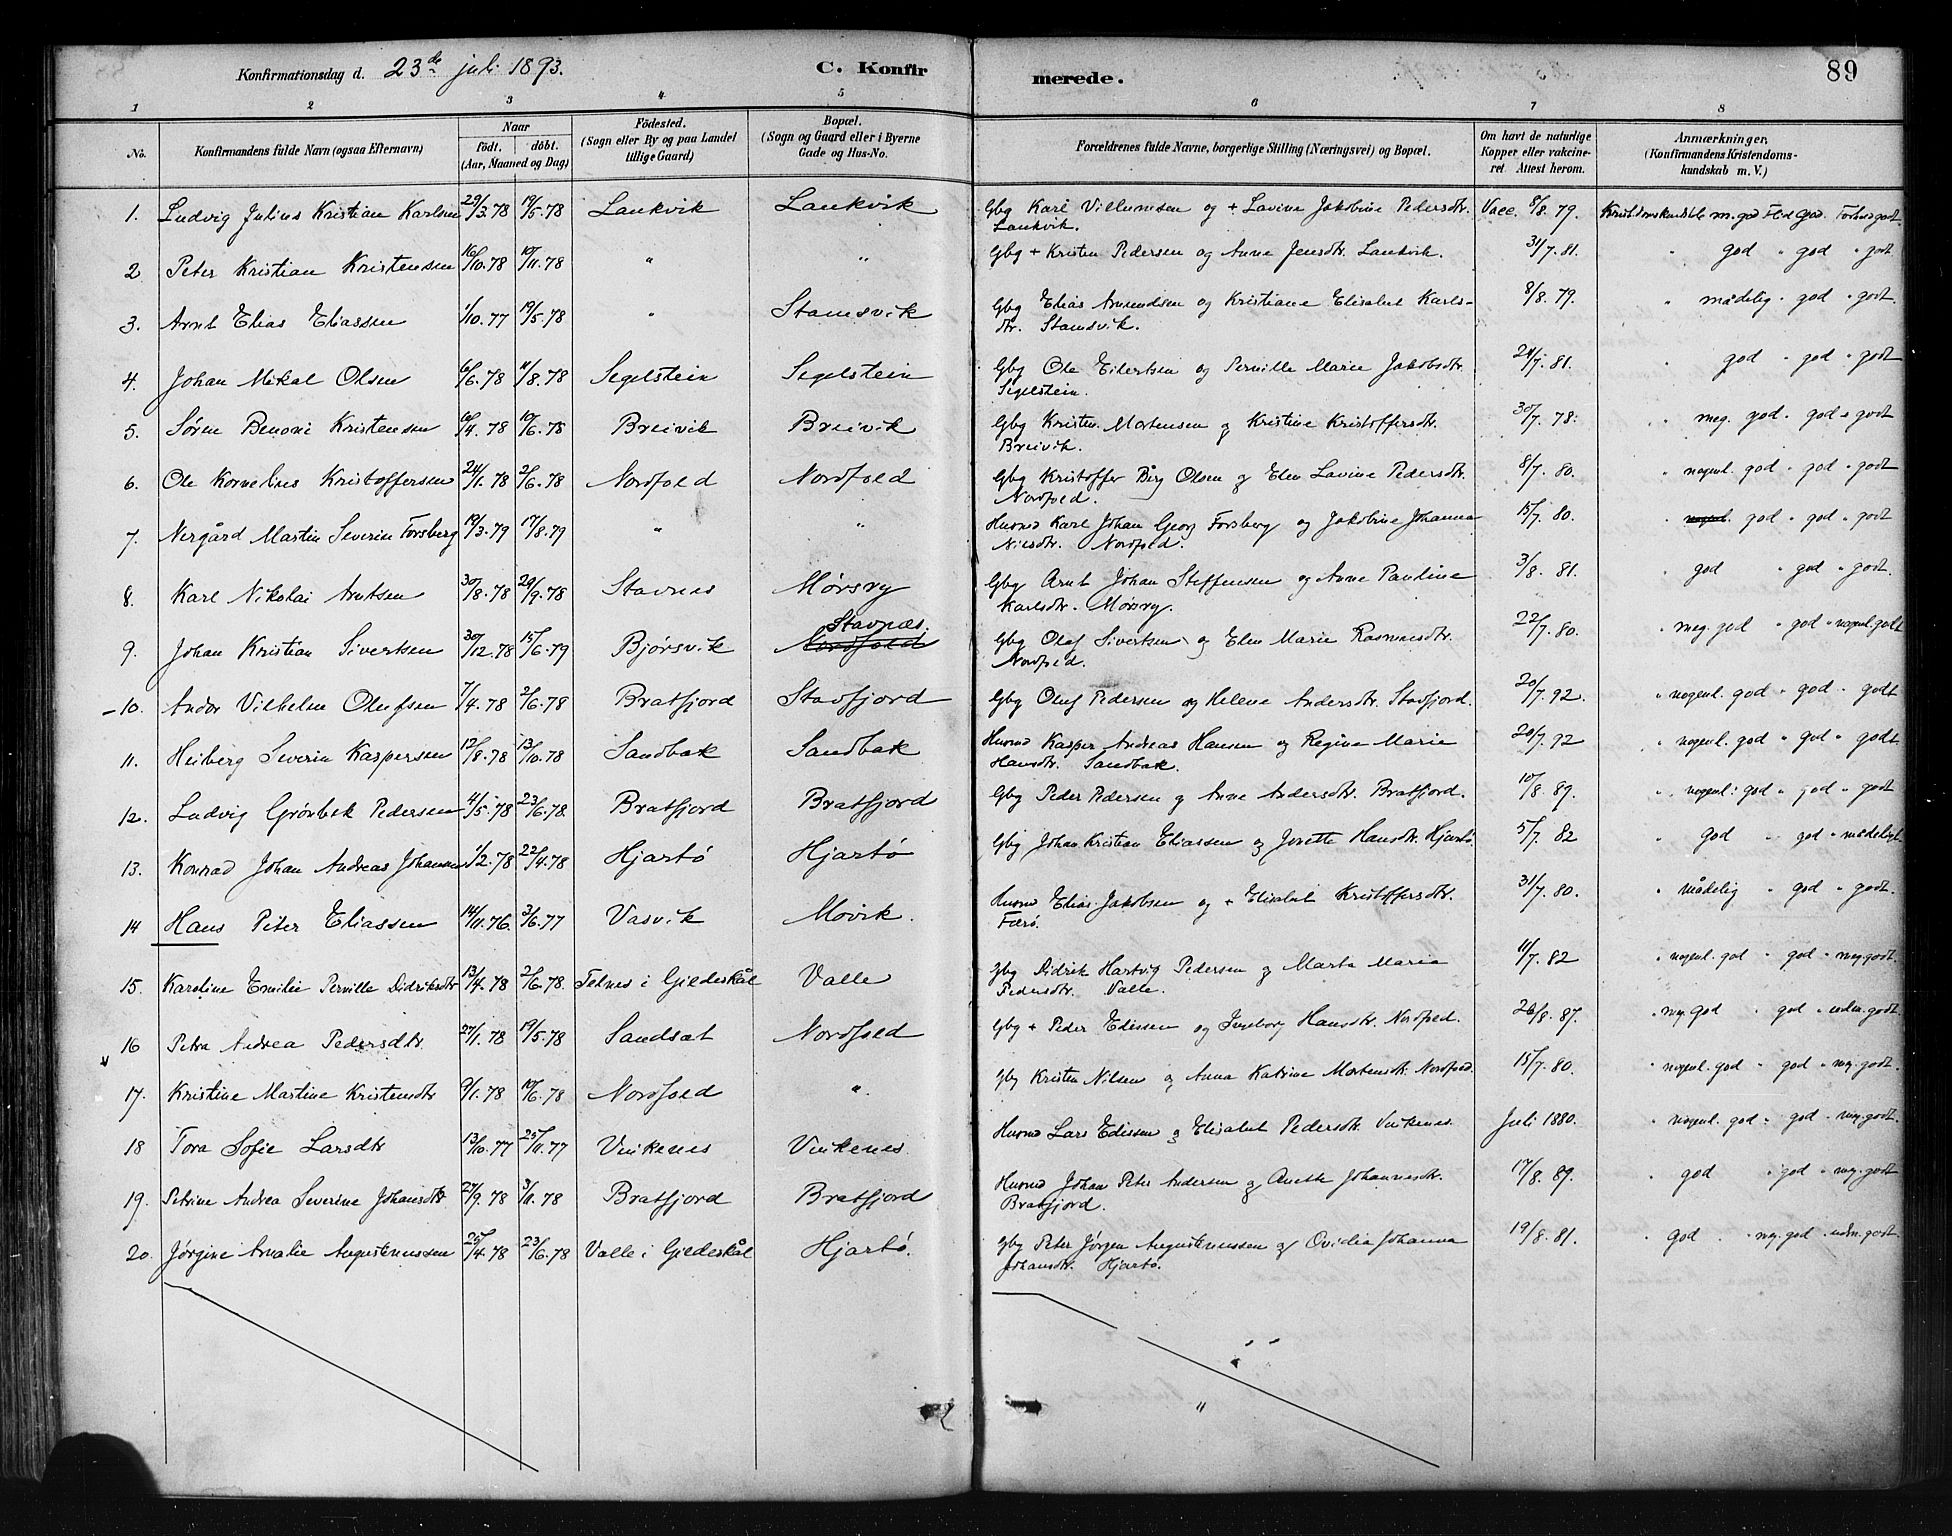 Konfirmationsdag d. 23de juli 1893. C. Konfirmerede. 89
1 2 3 4 5 6 7 8
No. Konfirmandens fulde Navn (ogsaa Efternavn) Naar födt. döbt. (Aar, Maaned og Dag) Födested. (Sogn eller By og paa Landet tillige Gaard) Bopæl. (Sogn og Gaard eller i Byerne Gade og Hus-No. Forældrenes fulde Navne, borgerlige Stilling (Næringsvei) og Bopæl. Om havt de naturlige Kopper eller vakcineret Attest herom. Anmærkninger, (Konfirmandens Kristendomskundskab m. V.)
1. Ludvig Julius Kristian Karlsen 29/3.78 19/5.78 Lankvik Lankvik Gbg Karl Villumsen og + Lavine Jakobine Pedersdtr. Lankvik. Vacc. 8/8. 79. m. god Flid god. Forhold godt
2 Peter Kristian Kristensen 16/10.78 10/11.78 " " Gbg + Kristen Pedersen og Anne Jensdtr. Lankvik. 31/7.81. " god " god " godt
3. Arnt Elias Eliassen 1/10.77 19/5.78 " Stamsvik Gbg Elias Amundsen og Kristiane Elisabet Karlsdtr. Stamsvik. 8/8.79. " mådelig " god " godt
4. Johan Mikal Olsen 6/6.78 11/8.78 Segelstein Segelstein Gbg Ole Eilertsen og Pernille Marie Jakobsdtr. Segelstein. 24/7.81. " god " god " godt
5. Søren Benoni Kristensen 6/4.78 10/6.78 Breivik Breivik Gbg Kristen Mortensen og Kristine Kristoffersdtr. Breivik. 30/7.78. " meg. god " god " godt
6. Ole Kornelius Kristoffersen 24/1.78 2/6.78 Nordfold Nordfold Gbg Kristoffer Berg Olsen og Elen Lavine Pedersdtr. Nordfold. 8/7.80. " nogenl. god " god " godt
7. Nergård Martin Severin Forsberg 19/3.79 17/8.79 " " Husmd Karl Johan Georg Forsberg og Jakobine Johanna Nilsdtr. Nordfold. 15/7.80. " nogenl. god " god " godt
8. Karl Nikolai Arntsen 30/8.78 29/9.78 Stavnes Mørsry Gbg Arnt Johan Steffensen og Anne Paulina Karlsdtr. Mørsry. 3/8.81. " god " god " godt.
9. Johan Kristian Sivertsen 30/12.78 15/6.79 Bjørsvik Stavnæs. Nordfold Gbg Olaf Sivertsen og Elen Marie Rasmusdtr. Nordfold. 22/7.80. " meg. god " god " nogenl. godt
- 10. Andor Vilhelm Olufsen 7/4.78 2/6.78 Bratfjord Stavfjord Gbg Oluf Pedersen og Helene Andersdtr. Stavfjord. 20/7.92. " nogenl. god " god " godt
11. Heiberg Severin Kaspersen 12/8.78 13/10.78 Sandbak Sandbak Husmd Kasper Andreas Hansen og Regine Marie Hansdtr. Sandbak. 20/7.92 " nogenl. god " god " godt
12. Ludvig Grönbek Pedersen 4/5.78 23/6.78. Bratfjord Bratfjord Gbg Peder Pedersen og Anne Andersdtr. Bratfjord. 10/8.89. " nogenl. god " god " godt
13. Konrad Johan Andreas Johansen 1/2.78 22/4.78 Hjartö Hjartö Gbg Johan Kristian Eliassen og Jorette Hansdtr. Hjartö. 5/7.82 " god " god " mådeligt
14 Hans Peter Eliassen 14/11.76. 3/6.77 Vasvik Movik. Husmd Elias Jakobsen og + Elisabet Kristoffersdtr. Færö. 31/7.80. " mådelig " god " godt.
15. Karoline Emilie Pernille Didriksdtr 13/4.78 2/6.78. Felnes i Gildeskål Valle Gbg Didrik Hartvig Pedersen og Marta Maria Pedersdtr. Valle. 11/7.82 " nogenl. god " god " meg. godt.
16 Petra Andrea Pedersdtr. 27/1.78 19/5.78 Sandsæt Nordfold Gbg + Peder Edissen og Ingeborg Hansdtr. Nordfold. 26/8.87. " meg. god " god " udm. godt.
17. Kristine Martine Kristendtr 9/1.78 10/6.78 Nordfold " Gbg Kristen Nilsen og Anna Katrine Mortensdtr. Nordfold. 15/7.80. " nogenl. god " god " meg. godt.
18 Tora Sofie Larsdtr 13/10.77 25/11.77 Vinkenes Vinkenes Husmd Lars Edissen og Elisabet Pedersdtr. Vinkenes. Juli 1880. " nogenl. god " god " meg. godt.
19. Petrine Andrea Severine Johansdtr. 27/9.78 3/11.78 Bratfjord Bratfjord Husmd Johan Peter Andersen og Anette Johannesdtr. Bratfjord. 17/8.89. " god " god " meg. godt
20. Jørgine Amalie Augustinussen 25/4.78 23/6.78 Valle i Gildeskål Hjartö. Gbg Peter Jørgen Augustinussen og Ovidia Johanna Johansdtr. Hjartö. 19/8.81. " god " meg. god " udm. godt.